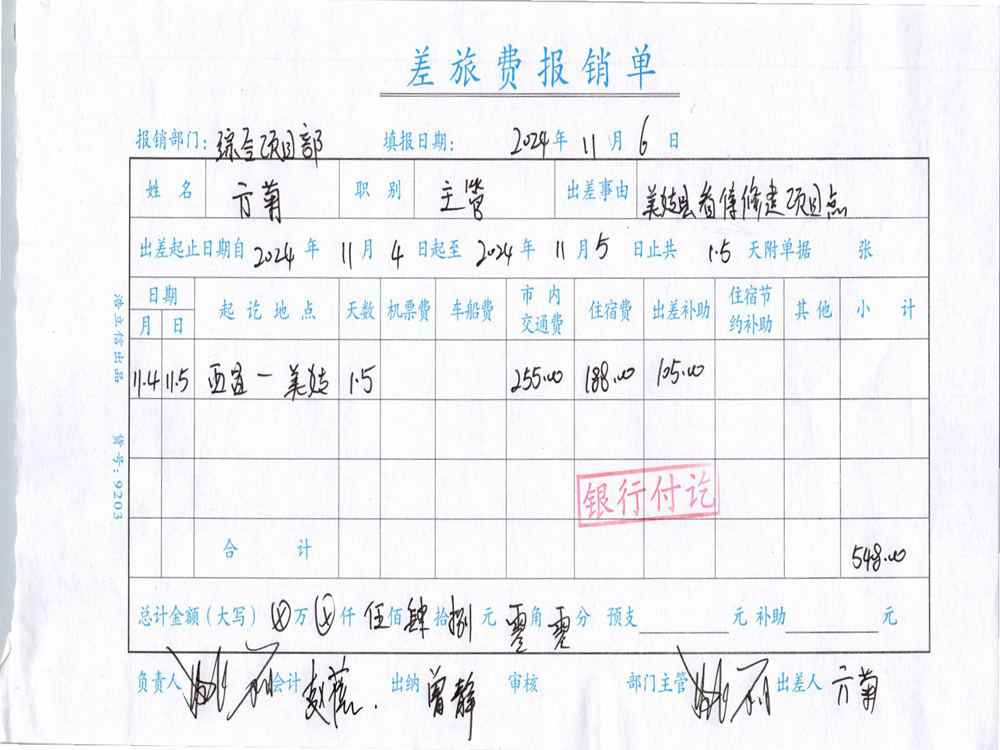 差旅费报销单
报销部门：综合项目部 填报日期： 2024年 11月 6日
姓名 方菊 职别 主管 出差事由 美姑县看傣修建项目点
出差起止日期自2024年11月4日起至2024年11月5日止共1.5天附单据 张
日期 起讫地点 天数 机票费 车船费 市内交通费 住宿费 出差补助 住宿节约补助 其他 小计
月 日
11.4 11.5 西昌－美姑 1.5 255.00 188.00 105.00
银行付讫
合计 548.00
总计金额（大写）⊗万⊗仟伍佰肆拾捌元零角零分 预支 元 补助 元
负责人 会计 赵 出纳 曾静 审核 部门主管 出差人 方菊
浩立信出品 货号：9203